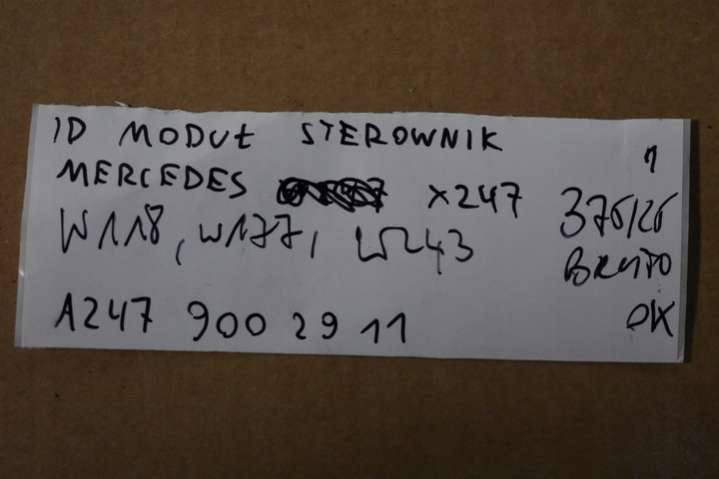 ID MODUŁ STEROWNIK
MERCEDES X247
W118, W177, W243
A247 900 29 11
1
376/26
BRUTTO
OK